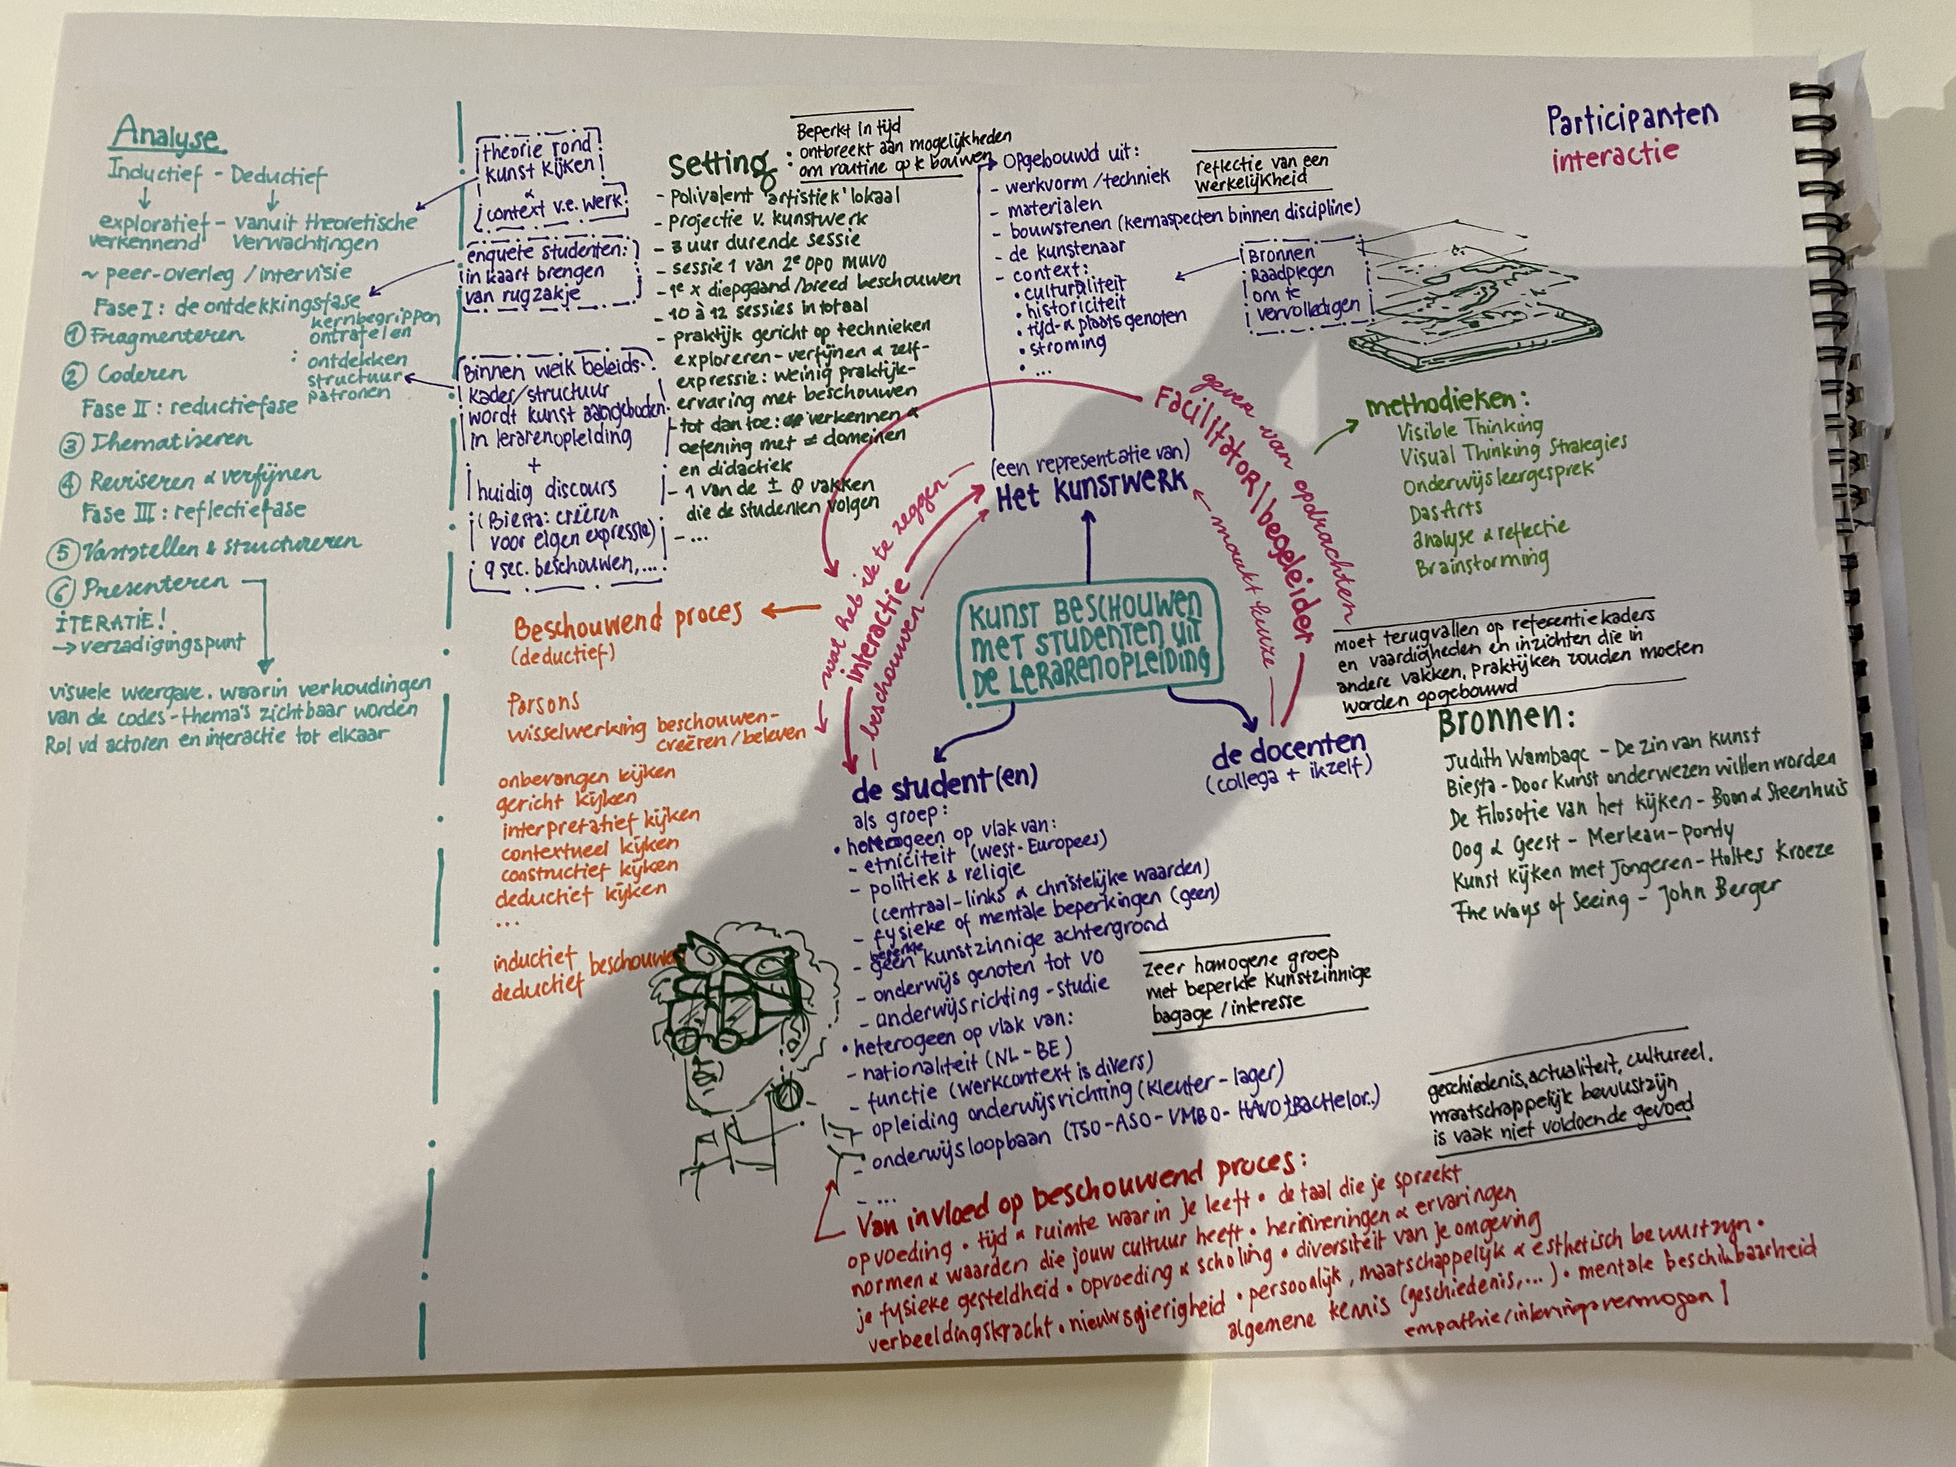 Analyse
Inductief - Deductief
exploratief - vanuit theoretische
verkennend verwachtingen
~ peer-overleg / intervisie
Fase I : de ontdekkingsfase
① Fragmenteren
kernbegrippen
ontrafelen
:
ontdekken
structuur
patronen
② Coderen
Fase II : reductiefase
③ Thematiseren
④ Reviseren & verfijnen
Fase III : reflectiefase
⑤ Vaststellen & structureren
⑥ Presenteren
ITERATIE!
→ verzadigingspunt
visuele weergave. waarin verhoudingen
van de codes - thema's zichtbaar worden
Rol vd actoren en interactie tot elkaar
theorie rond
kunst kijken
&
context v.e. werk
enquete studenten:
in kaart brengen
van rugzakje
Binnen welk beleids-
kader/structuur
wordt kunst aangeboden
in lerarenopleiding
+
huidig discours
(Biesta: creëren
voor eigen expressie)
9 sec. beschouwen, ...
Setting
Beperkt in tijd
ontbreekt aan mogelijkheden
om routine op te bouwen
- polivalent 'artistiek' lokaal
- projectie v. kunstwerk
- 3 uur durende sessie
- sessie 1 van 2e OPO MUVO
- 1e x diepgaand/breed beschouwen
- 10 à 12 sessies in totaal
- praktijk gericht op technieken
exploreren - verfijnen & zelf-
expressie: weinig praktijk-
ervaring met beschouwen
- tot dan toe: verkennen &
oefening met ≠ domeinen
en didactiek
- 1 van de ± 8 vakken
die de studenten volgen
- ...
Opgebouwd uit:
- werkvorm / techniek
- materialen
- bouwstenen (kernaspecten binnen discipline)
- de kunstenaar
- context:
• culturaliteit
• historiciteit
• tijd- & plaats genoten
• stroming
• ...
reflectie van een
werkelijkheid
Bronnen
Raadplegen
om te
vervolledigen
Participanten
interactie
(een representatie van)
Het KUNSTWERK
Facilitator/begeleider
geven van opdrachten
maakt keuze
wat heb ik te zeggen
interactie
beschouwen
methodieken:
Visible Thinking
Visual Thinking Strategies
Onderwijsleergesprek
DasArts
analyse & reflectie
Brainstorming
KUNST BESCHOUWEN
MET STUDENTEN UIT
DE LERARENOPLEIDING
moet terugvallen op referentiekaders
en vaardigheden en inzichten die in
andere vakken, praktijken zouden moeten
worden opgebouwd
Beschouwend proces
(deductief)
Parsons
wisselwerking beschouwen-
creëren / beleven
onbevangen kijken
gericht kijken
interpretatief kijken
contextueel kijken
constructief kijken
deductief kijken
...
inductief
deductief beschouwen
de docenten
(collega + ikzelf)
Bronnen:
Judith Wambacq - De zin van kunst
Biesta - Door Kunst onderwezen willen worden
De Filosofie van het kijken - Boon & Steenhuis
Oog & Geest - Merleau-Ponty
Kunst kijken met Jongeren - Holtes Kroeze
The Ways of Seeing - John Berger
de student(en)
als groep:
• homogeen op vlak van:
- etniciteit (West-Europees)
- politiek & religie
(centraal-links & christelijke waarden)
- fysieke of mentale beperkingen (geen)
beperkte
- geen kunstzinnige achtergrond
- onderwijs genoten tot VO
- onderwijsrichting - studie
• heterogeen op vlak van:
- nationaliteit (NL - BE)
- functie (werkcontext is divers)
- opleiding onderwijsrichting (Kleuter - lager)
- onderwijsloopbaan (TSO - ASO - VMBO - HAVO, Bachelor.)
- ...
zeer homogene groep
met beperkte kunstzinnige
bagage / interesse
geschiedenis, actualiteit, cultureel.
maatschappelijk bewustzijn
is vaak niet voldoende gevoed
Van invloed op beschouwend proces:
opvoeding • tijd & ruimte waarin je leeft • de taal die je spreekt
normen & waarden die jouw cultuur heeft • herinneringen & ervaringen
je fysieke gesteldheid • opvoeding & scholing • diversiteit van je omgeving
verbeeldingskracht • nieuwsgierigheid • persoonlijk, maatschappelijk & esthetisch bewustzijn •
algemene kennis (geschiedenis, ...) • mentale beschikbaarheid
empathie / inlevingsvermogen